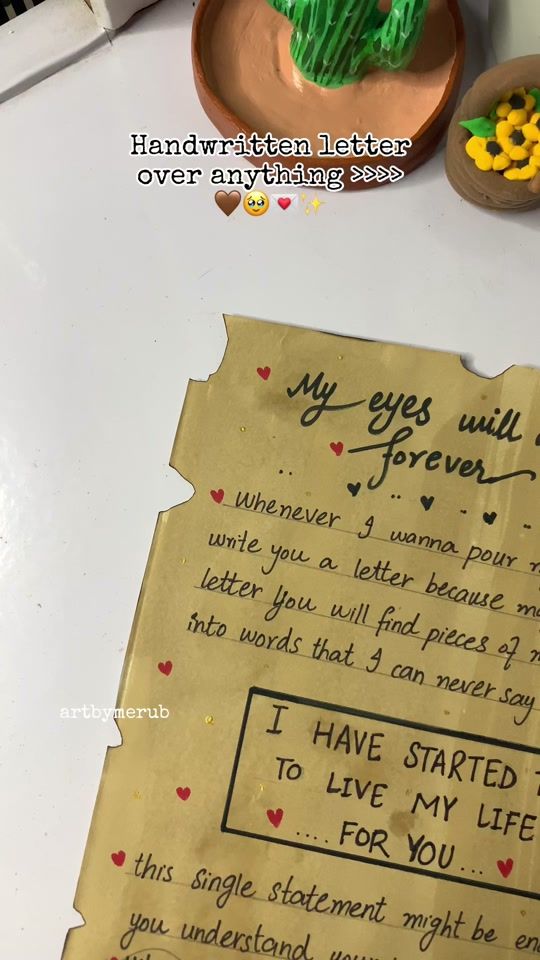 Handwritten letter
over anything >>>>
🤎🥹💌✨
My eyes will
forever
whenever I wanna pour
write you a letter because
letter you will find pieces of
into words that I can never say
artbymerub
I HAVE STARTED
TO LIVE MY LIFE
.... FOR YOU ...
this single statement might be
you understand